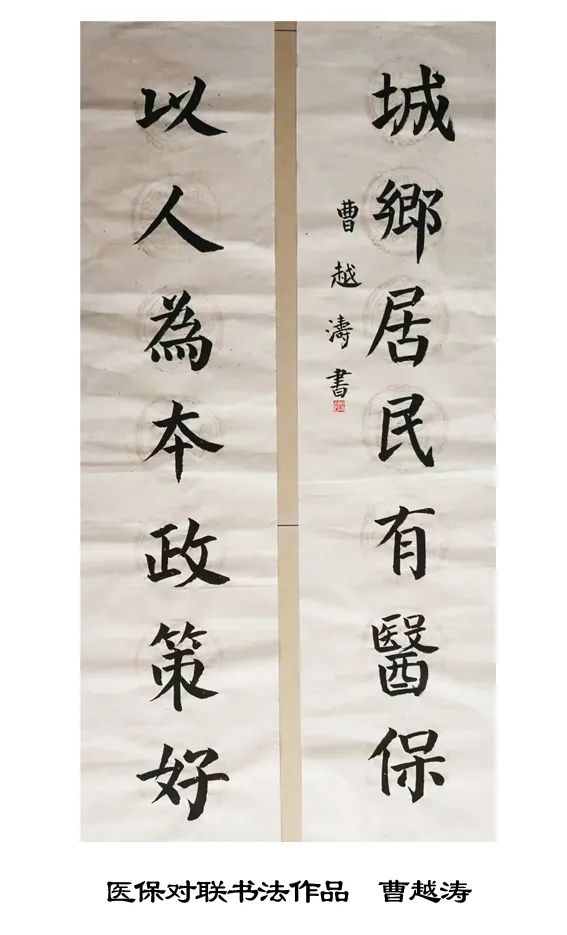 城鄉居民有醫保
曹越濤書
以人為本政策好
医保对联书法作品　曹越涛